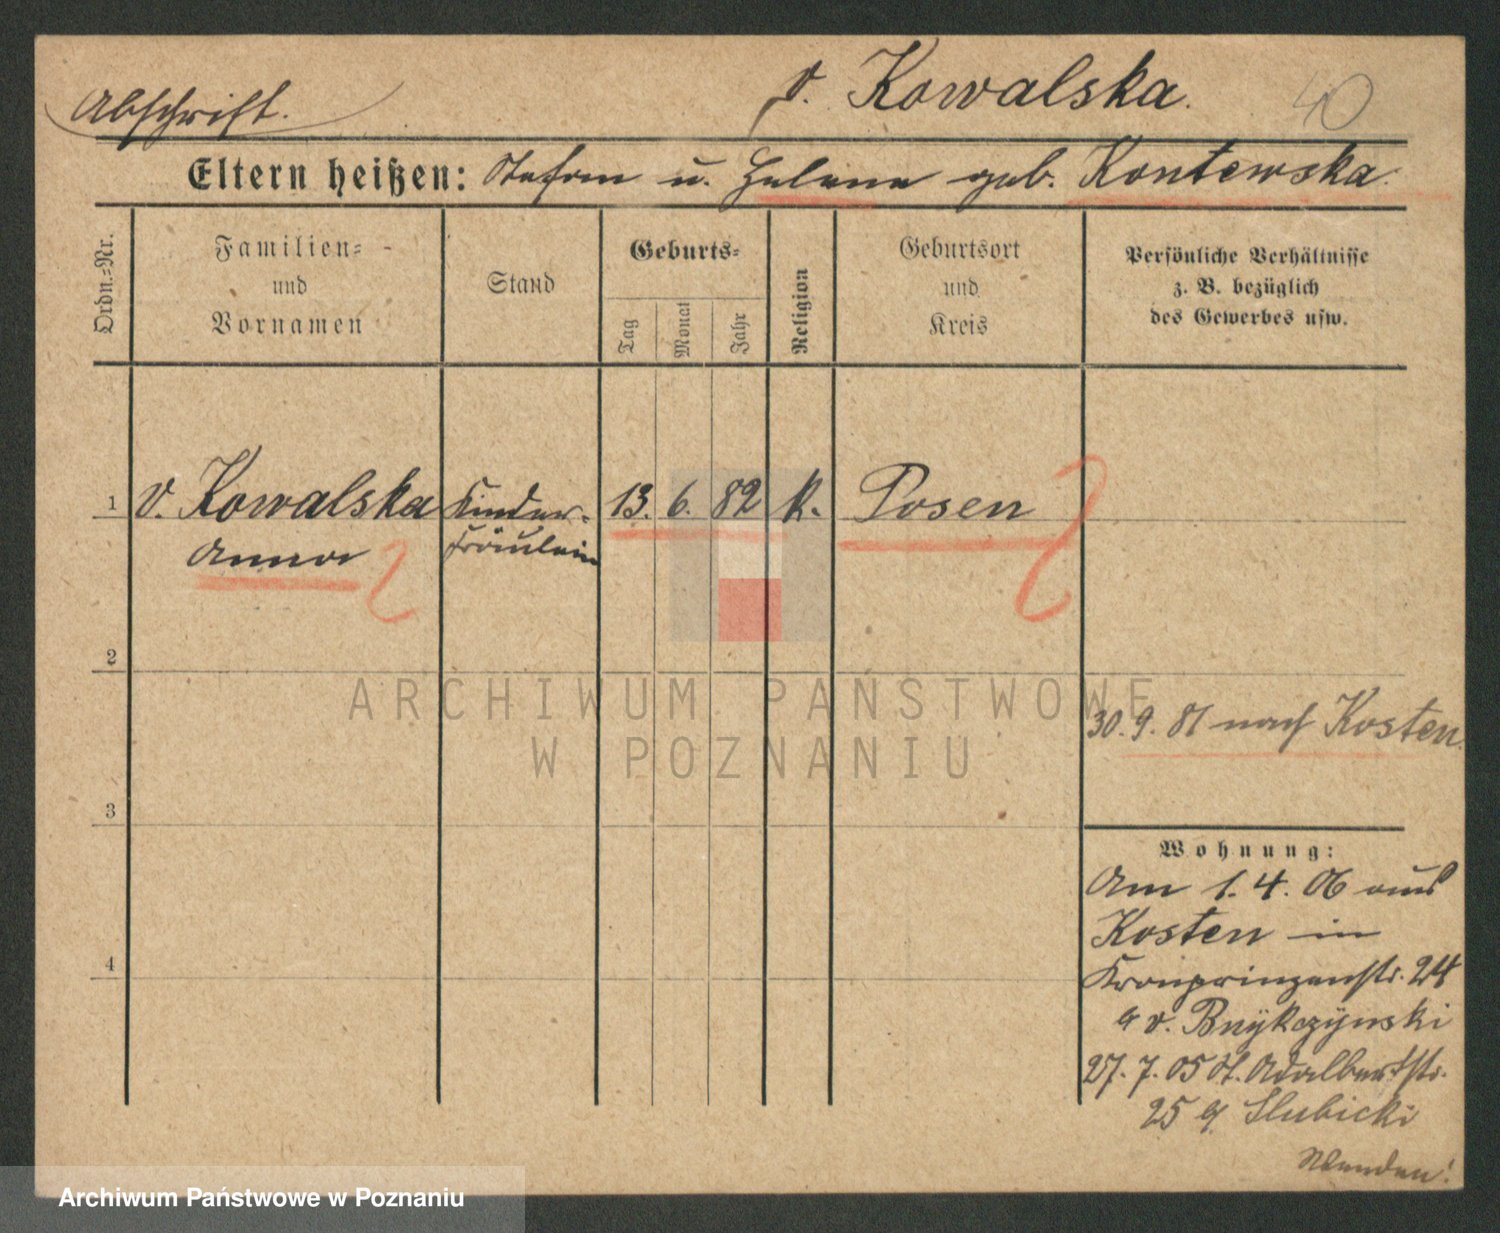 Abschrift.
v. Kowalska.
40
Eltern heißen: Stefan u. Helene geb. Kontewska.
Ordn.-Nr.
Familien-
und
Vornamen
Stand
Geburts-
Tag
Monat
Jahr
Religion
Geburtsort
und
Kreis
Persönliche Verhältnisse
z. B. bezüglich
des Gewerbes usw.
1 v. Kowalska Kinder- 13. 6. 82 k. Posen
Anna fräulein
2
30. 9. 81 nach Kosten
3
Wohnung:
Am 1. 4. 06 aus
Kosten in
4
Kronprinzenstr. 24
v.
27. 7. 05 St. Adalbertstr.
25 Slubicki
Wenden!
ARCHIWUM PAŃSTWOWE
W POZNANIU
Archiwum Państwowe w Poznaniu